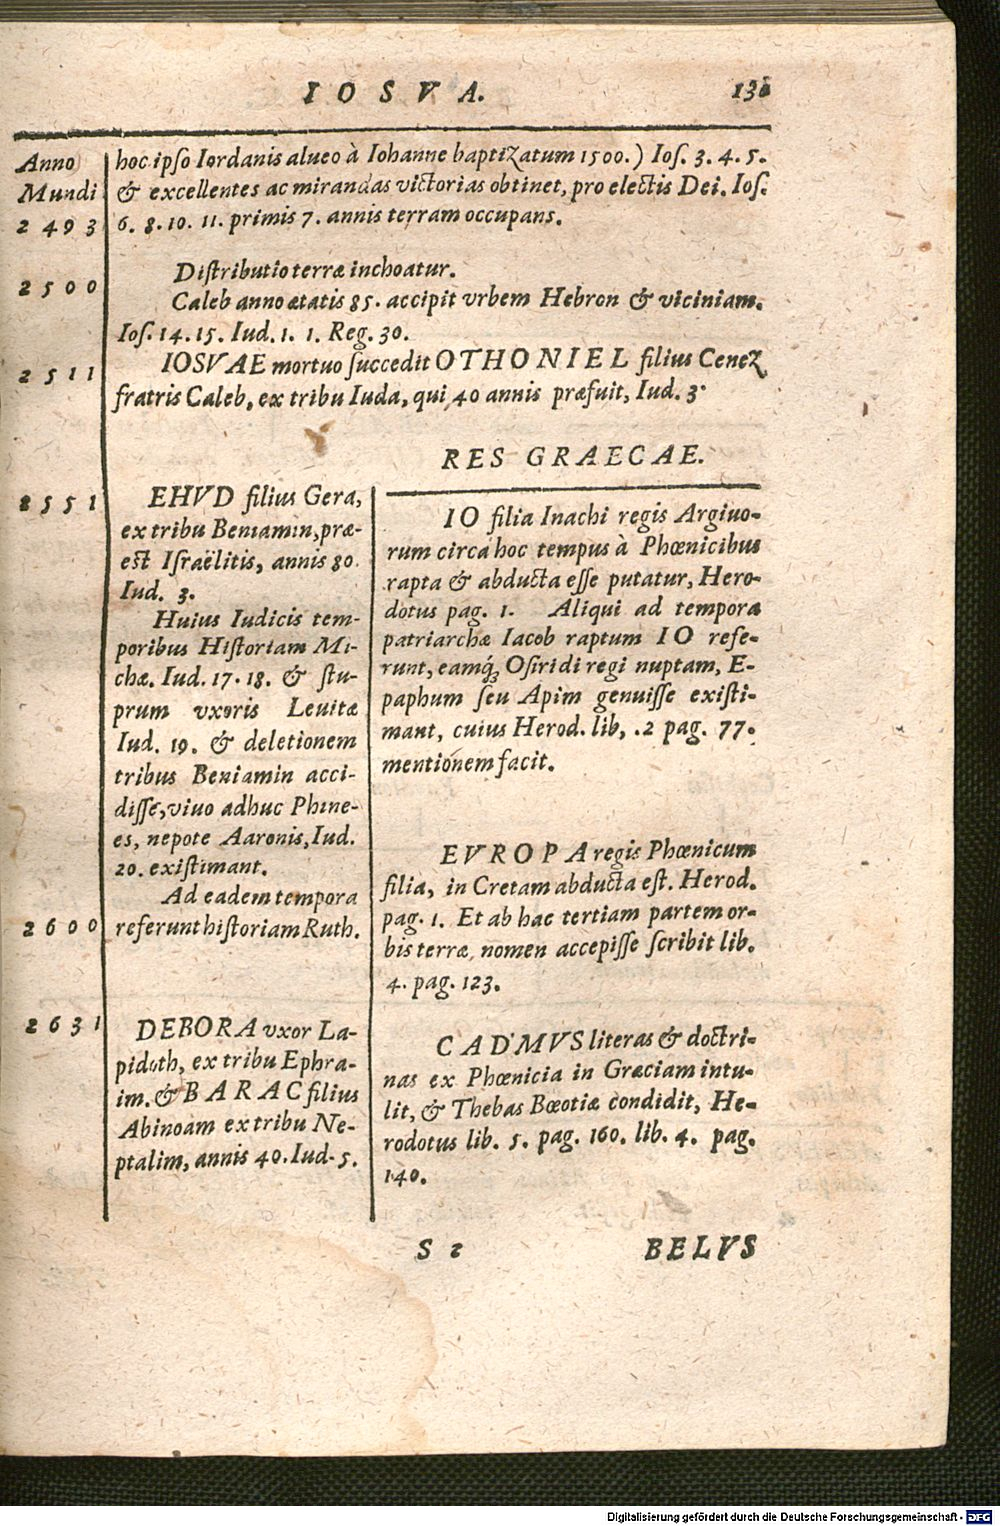 IOSVA.
Anno
Mundi
2493
hoc ipso Iordanis alueo à Iohanne baptizatum 1500.) Ios. 3. 4. 5.
& excellentes ac mirandas victorias obtinet, pro electis Dei. Ios.
6. 8. 10. 11. primis 7. annis terram occupans.
2500
Distributio terræ inchoatur.
Caleb anno ætatis 85. accipit vrbem Hebron & viciniam.
Ios. 14. 15. Iud. 1. 1. Reg. 30.
2511
IOSVAE mortuo succedit OTHONIEL filius Cenez
fratris Caleb, ex tribu Iuda, qui 40 annis præfuit, Iud. 3.
2551
EHVD filius Gera,
ex tribu Beniamin, præ-
est Israëlitis, annis 80.
Iud. 3.
Huius Iudicis tem-
poribus Historiam Mi-
chæ. Iud. 17. 18. & stu-
prum vxoris Leuitæ
Iud. 19. & deletionem
tribus Beniamin acci-
disse, viuo adhuc Phine-
es, nepote Aaronis, Iud.
20. existimant.
Ad eadem tempora
2600
referunt historiam Ruth.
2631
DEBORA vxor La-
pidoth, ex tribu Ephra-
im. & BARAC filius
Abinoam ex tribu Ne-
ptalim, annis 40. Iud. 5.
RES GRAECAE.
IO filia Inachi regis Argiuo-
rum circa hoc tempus à Phœnicibus
rapta & abducta esse putatur, Hero-
dotus pag. 1. Aliqui ad tempora
patriarchæ Iacob raptum IO refe-
runt, eamq́; Osiridi regi nuptam, E-
paphum seu Apim genuisse existi-
mant, cuius Herod. lib, .2 pag. 77.
mentionem facit.
EVROPA regis Phœnicum
filia, in Cretam abducta est. Herod.
pag. 1. Et ab hac tertiam partem or-
bis terræ, nomen accepisse scribit lib.
4. pag. 123.
CADMVS literas & doctri-
nas ex Phœnicia in Græciam intu-
lit, & Thebas Bœotiæ condidit, He-
rodotus lib. 5. pag. 160. lib. 4. pag.
140.
S 2
BELVS
Digitalisierung gefördert durch die Deutsche Forschungsgemeinschaft - DFG